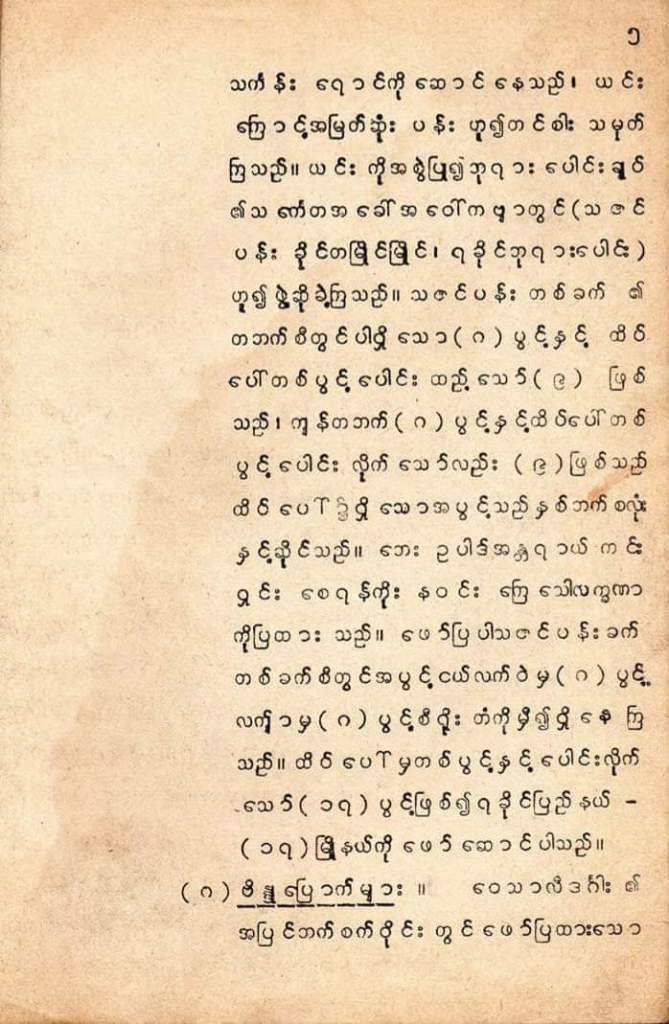 ၅
သင်္ကန်း ရောင်ကို ဆောင် နေသည်၊ ယင်း
ကြောင့်အမြတ်ဆုံး ပန်း ဟူ၍တင်စါး သမုတ်
ကြသည်။ ယင်း ကိုအစွဲပြု၍ဘုရား ပေါင်းချုပ်
၏သင်္ကေတအခေါ်အဝေါ်ကဗျာတွင်(သဇင်
ပန်း ခိုင်တမြိုင်မြိုင်၊ ရခိုင်ဘုရားပေါင်း)
ဟူ၍ဖွဲ့ဆိုခဲ့ကြသည်။ သဇင်ပန်း တစ်ခက် ၏
တဘက်စီတွင်ပါရှိသော(၈)ပွင့်နှင့် ထိပ်
ပေါ်တစ်ပွင့်ပေါင်း ထည့်သော်(၉) ဖြစ်
သည်၊ ကျန်တဘက်(၈)ပွင့်နှင့်ထိပ်ပေါ်တစ်
ပွင့်ပေါင်း လိုက်သော်လည်း (၉)ဖြစ်သည်
ထိပ်ပေါ်၌ရှိသောအပွင့်သည်နှစ်ဘက်စလုံး
နှင့်ဆိုင်သည်။ ဘေး ဥပါဒ်အန္တရာယ် ကင်း
ရှင်း စေရန်ကိုး နဝင်း ကြေသေါလက္ခဏာ
ကိုပြထား သည်။ ဖော်ပြပါသဇင်ပန်းခက်
တစ်ခက်စီတွင်အပွင့်ငယ်လက်ဝဲမှ(၈)ပွင့်
လက်ျာမှ(၈)ပွင့်စီရိုး တံကိုမှီ၍ရှိနေ ကြ
သည်။ ထိပ်ပေါ်မှတစ်ပွင့်နှင့်ပေါင်းလိုက်
သော်(၁၇)ပွင့်ဖြစ်၍ရခိုင်ပြည်နယ် -
(၁၇)မြို့နယ်ကိုဖော်ဆောင်ပါသည်။
(ဂ)ဗိန္ဓုပြောက်များ ။ ဝေသာလီဒင်္ဂါး ၏
အပြင်ဘက်စက်ဝိုင်း တွင်ဖော်ပြထားသော